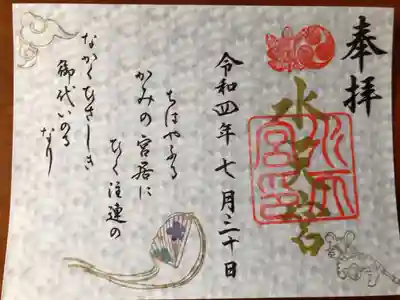 奉拝
水天宮
水天宮印
令和四年七月三十日
ちはやふる
かみの宮居に
ひく注連の
ながくひさしき
御代いのるなり